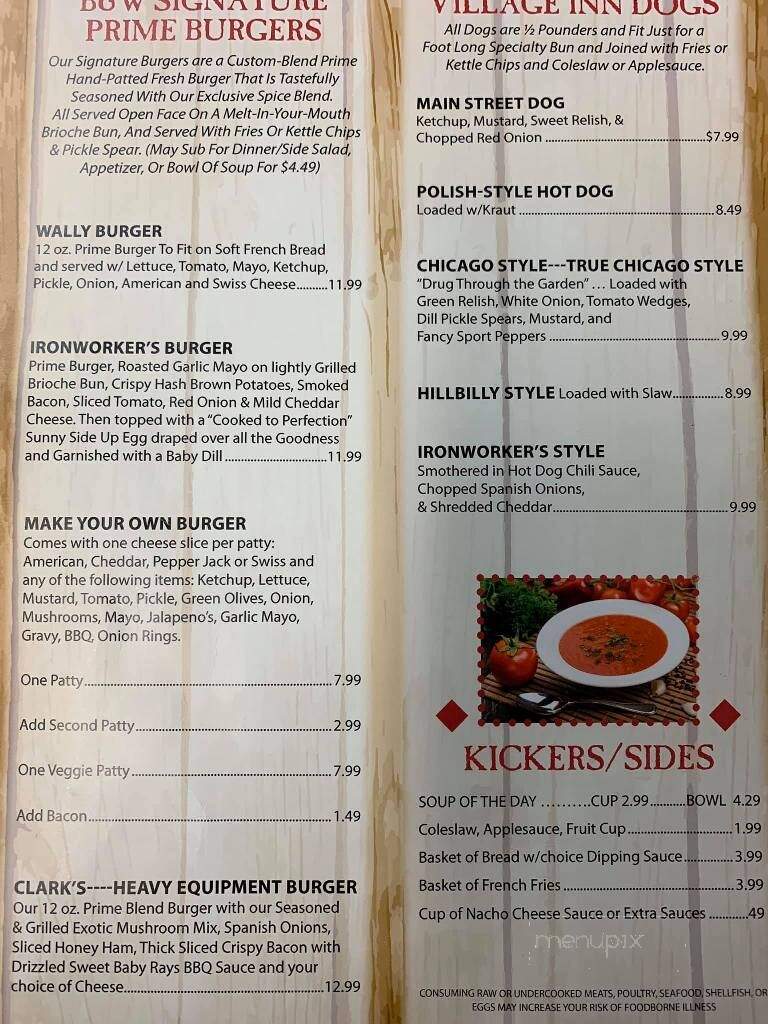 B&W SIGNATURE
PRIME BURGERS
Our Signature Burgers are a Custom-Blend Prime
Hand-Patted Fresh Burger That Is Tastefully
Seasoned With Our Exclusive Spice Blend.
All Served Open Face On A Melt-In-Your-Mouth
Brioche Bun, And Served With Fries Or Kettle Chips
& Pickle Spear. (May Sub For Dinner/Side Salad,
Appetizer, Or Bowl Of Soup For $4.49)
WALLY BURGER
12 oz. Prime Burger To Fit on Soft French Bread
and served w/ Lettuce, Tomato, Mayo, Ketchup,
Pickle, Onion, American and Swiss Cheese..........11.99
IRONWORKER'S BURGER
Prime Burger, Roasted Garlic Mayo on lightly Grilled
Brioche Bun, Crispy Hash Brown Potatoes, Smoked
Bacon, Sliced Tomato, Red Onion & Mild Cheddar
Cheese. Then topped with a "Cooked to Perfection"
Sunny Side Up Egg draped over all the Goodness
and Garnished with a Baby Dill.................................11.99
MAKE YOUR OWN BURGER
Comes with one cheese slice per patty:
American, Cheddar, Pepper Jack or Swiss and
any of the following items: Ketchup, Lettuce,
Mustard, Tomato, Pickle, Green Olives, Onion,
Mushrooms, Mayo, Jalapeno's, Garlic Mayo,
Gravy, BBQ, Onion Rings.
One Patty..............................................................7.99
Add Second Patty..................................................2.99
One Veggie Patty...................................................7.99
Add Bacon.............................................................1.49
CLARK'S----HEAVY EQUIPMENT BURGER
Our 12 oz. Prime Blend Burger with our Seasoned
& Grilled Exotic Mushroom Mix, Spanish Onions,
Sliced Honey Ham, Thick Sliced Crispy Bacon with
Drizzled Sweet Baby Rays BBQ Sauce and your
choice of Cheese..................................................12.99
VILLAGE INN DOGS
All Dogs are ½ Pounders and Fit Just for a
Foot Long Specialty Bun and Joined with Fries or
Kettle Chips and Coleslaw or Applesauce.
MAIN STREET DOG
Ketchup, Mustard, Sweet Relish, &
Chopped Red Onion ..........................................$7.99
POLISH-STYLE HOT DOG
Loaded w/Kraut ...................................................8.49
CHICAGO STYLE---TRUE CHICAGO STYLE
"Drug Through the Garden" ... Loaded with
Green Relish, White Onion, Tomato Wedges,
Dill Pickle Spears, Mustard, and
Fancy Sport Peppers ............................................9.99
HILLBILLY STYLE Loaded with Slaw.............8.99
IRONWORKER'S STYLE
Smothered in Hot Dog Chili Sauce,
Chopped Spanish Onions,
& Shredded Cheddar.............................................9.99
KICKERS/SIDES
SOUP OF THE DAY ..........CUP 2.99..........BOWL 4.29
Coleslaw, Applesauce, Fruit Cup...........................1.99
Basket of Bread w/choice Dipping Sauce.............3.99
Basket of French Fries ...........................................3.99
Cup of Nacho Cheese Sauce or Extra Sauces ..........49
menupix
CONSUMING RAW OR UNDERCOOKED MEATS, POULTRY, SEAFOOD, SHELLFISH, OR
EGGS MAY INCREASE YOUR RISK OF FOODBORNE ILLNESS